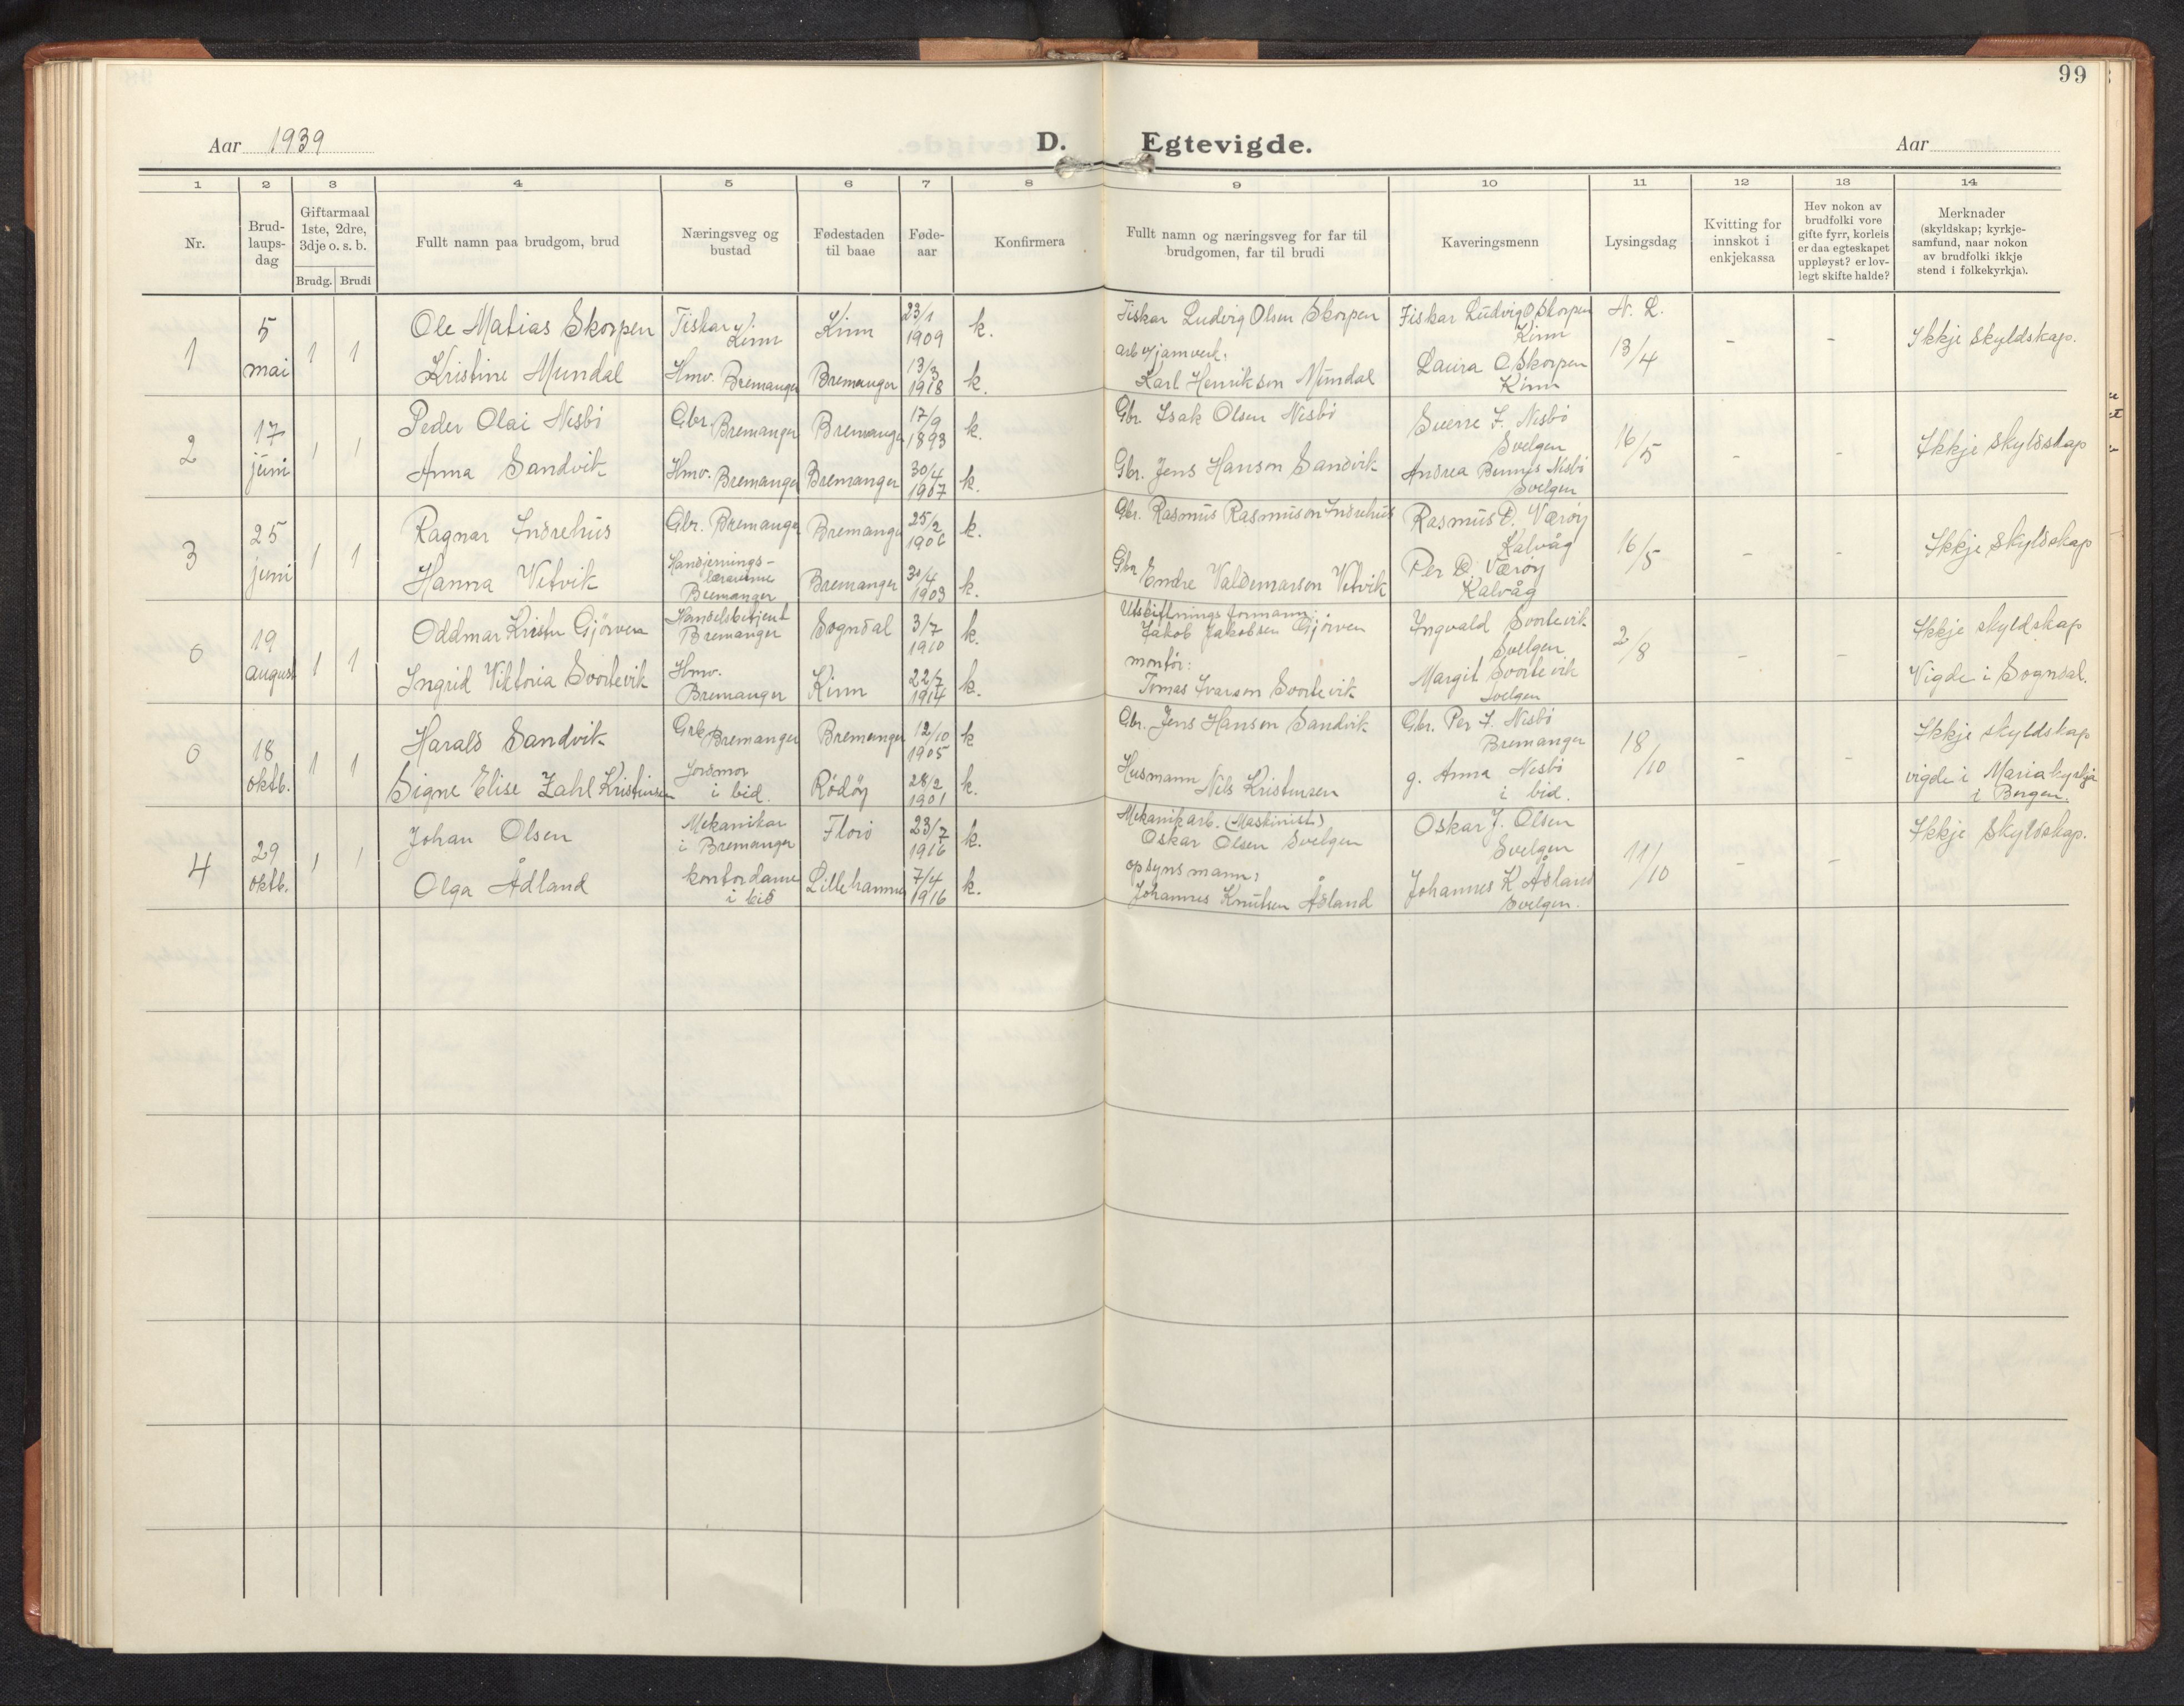 99
Aar 1939
D. Egtevigde.
Aar
1 2 3 4 5 6 7 8 9 10 11 12 13 14
Nr.
Brud-
laups-
dag
Giftarmaal
1ste, 2dre,
3dje o. s. b.
Brudg. Brudi
Fullt namn paa brudgom, brud
Næringsveg og
bustad
Fødestaden
til baae
Føde-
aar
Konfirmera
Fullt namn og næringsveg for far til
brudgomen, far til brudi
Kaveringsmenn
Lysingsdag
Kvitting for
innskot i
enkjekassa
Hev nokon av
brudfolki vore
gifte fyrr, korleis
er daa egteskapet
uppløyst? er lov-
legt skifte halde?
Merknader
(skyldskap; kyrkje-
samfund, naar nokon
av brudfolki ikkje
stend i folkekyrkja).
1
5
mai
1 1
Ole Matias Skorpen
Kristine Mundal
Fiskar
Kinn
Hmv. Bremanger
Kinn
Bremanger
23/1
1909
13/3
1918
k.
k.
Fiskar Ludvig Olsen Skorpen
arb v/jarnverk:
Karl Henrikson Mundal
Fiskar Ludvig O Skorpen
Kinn
Laura O Skorpen
Kinn
N. L.
13/4
- -
Ikkje skyldskap.
2
17
juni
1 1
Peder Olai Nesbø
Anna Sandvik
Gbr. Bremanger
Hmv. Bremanger
Bremanger
Bremanger
17/9
1893
30/4
1907
k.
k.
Gbr. Isak Olsen Nesbø
Gbr. Jens Hanson Sandvik
Sverre I. Nesbø
Svelgen
Andrea Nesbø
Svelgen
16/5
- -
Ikkje skyldskap
3
25
juni
1 1
Ragnar Indrehus
Hanna Vetvik
Gbr. Bremanger
Handjernings-
lærarinne
Bremanger
Bremanger
Bremanger
25/2
1906
30/4
1903
k.
k.
Gbr. Rasmus Rasmuson Indrehus
Gbr
Endre Valdemarson Vetvik
Rasmus D. Værøy
Kalvåg
Per D. Værøy
Kalvåg
16/5
- -
Ikkje skyldskap
0
19
august
1 1
Oddmar Kristen Gjørven
Ingrid Viktoria Svortevik
Handelsbetjent
Bremanger
Hmv.
Bremanger
Sogndal
Kinn
3/7
1910
22/7
1914
k.
k.
Utskiftningsformann:
Jakob Jakobsen Gjørven
montør:
Tomas Ivarson Svortevik
Ingvald Svortevik
Svelgen
Margit Svortevik
Svelgen
2/8
- -
Ikkje skyldskap
Vigde i Sogndal.
0
18
oktb.
1 1
Harald Sandvik
Signe Elise Zahl Kristensen
Bremanger
Jordmor
i bid.
Bremanger
Rødøy
12/10
1905
28/2
1901
k
k.
Gbr. Jens Hanson Sandvik
Husmann Nils Kristensen
Gbr. Per I. Nesbø
Bremanger
g. Anna Nesbø
i bid.
18/10
- -
Ikkje skyldskap
vigde i Mariakyrkja
i Bergen.
4
29
oktb.
1 1
Johan Olsen
Olga Ådland
Mekanikar
i Bremanger
kontordame
i bid
Florø
Lillehammer
23/7
1916
7/4
1916
k.
k.
Mekanikarb. (Maskinist)
Oskar Olsen Svelgen
opsynsmann:
Johannes Knutsen Ådland
Oskar J. Olsen
Svelgen
Johannes K Ådland
Svelgen.
11/10
- -
Ikkje skyldskap.